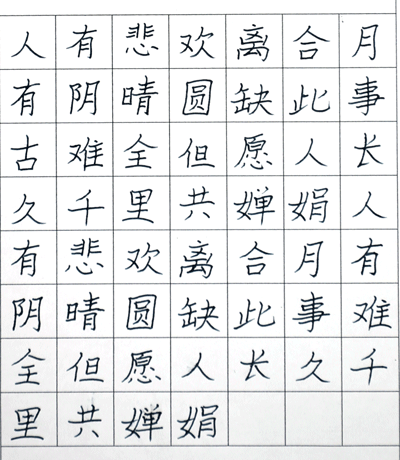 人有悲欢离合月
有阴晴圆缺此事
古难全但愿人长
久千里共婵娟人
有悲欢离合月有
阴晴圆缺此事难
全但愿人长久千
里共婵娟